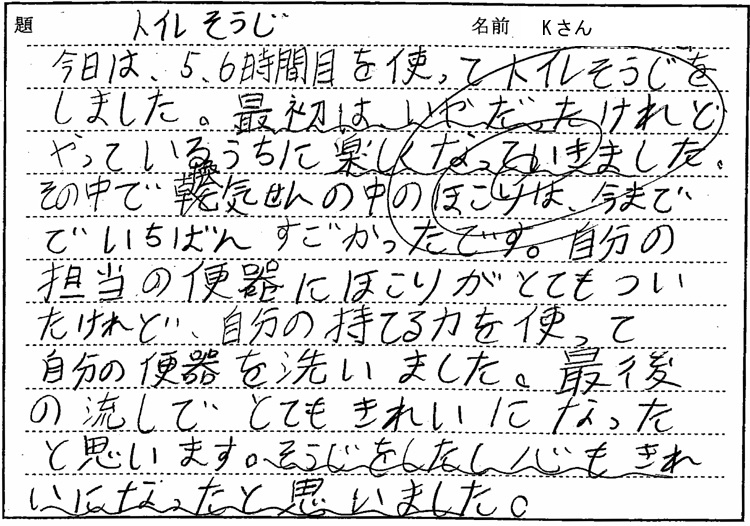 題 トイレそうじ 名前 Kさん
今日は、5、6時間目を使ってトイレそうじを
しました。最初は、いやだったけれど
やっているうちに楽しくなっていきました。
その中で換気せんの中のほこりは、今まで
でいちばんすごかったです。自分の
担当の便器にほこりがとてもつい
たけれど、自分の持てる力を使って
自分の便器を洗いました。最後
の流しで、とてもきれいになった
と思います。そうじをしたし心もきれ
いになったと思いました。